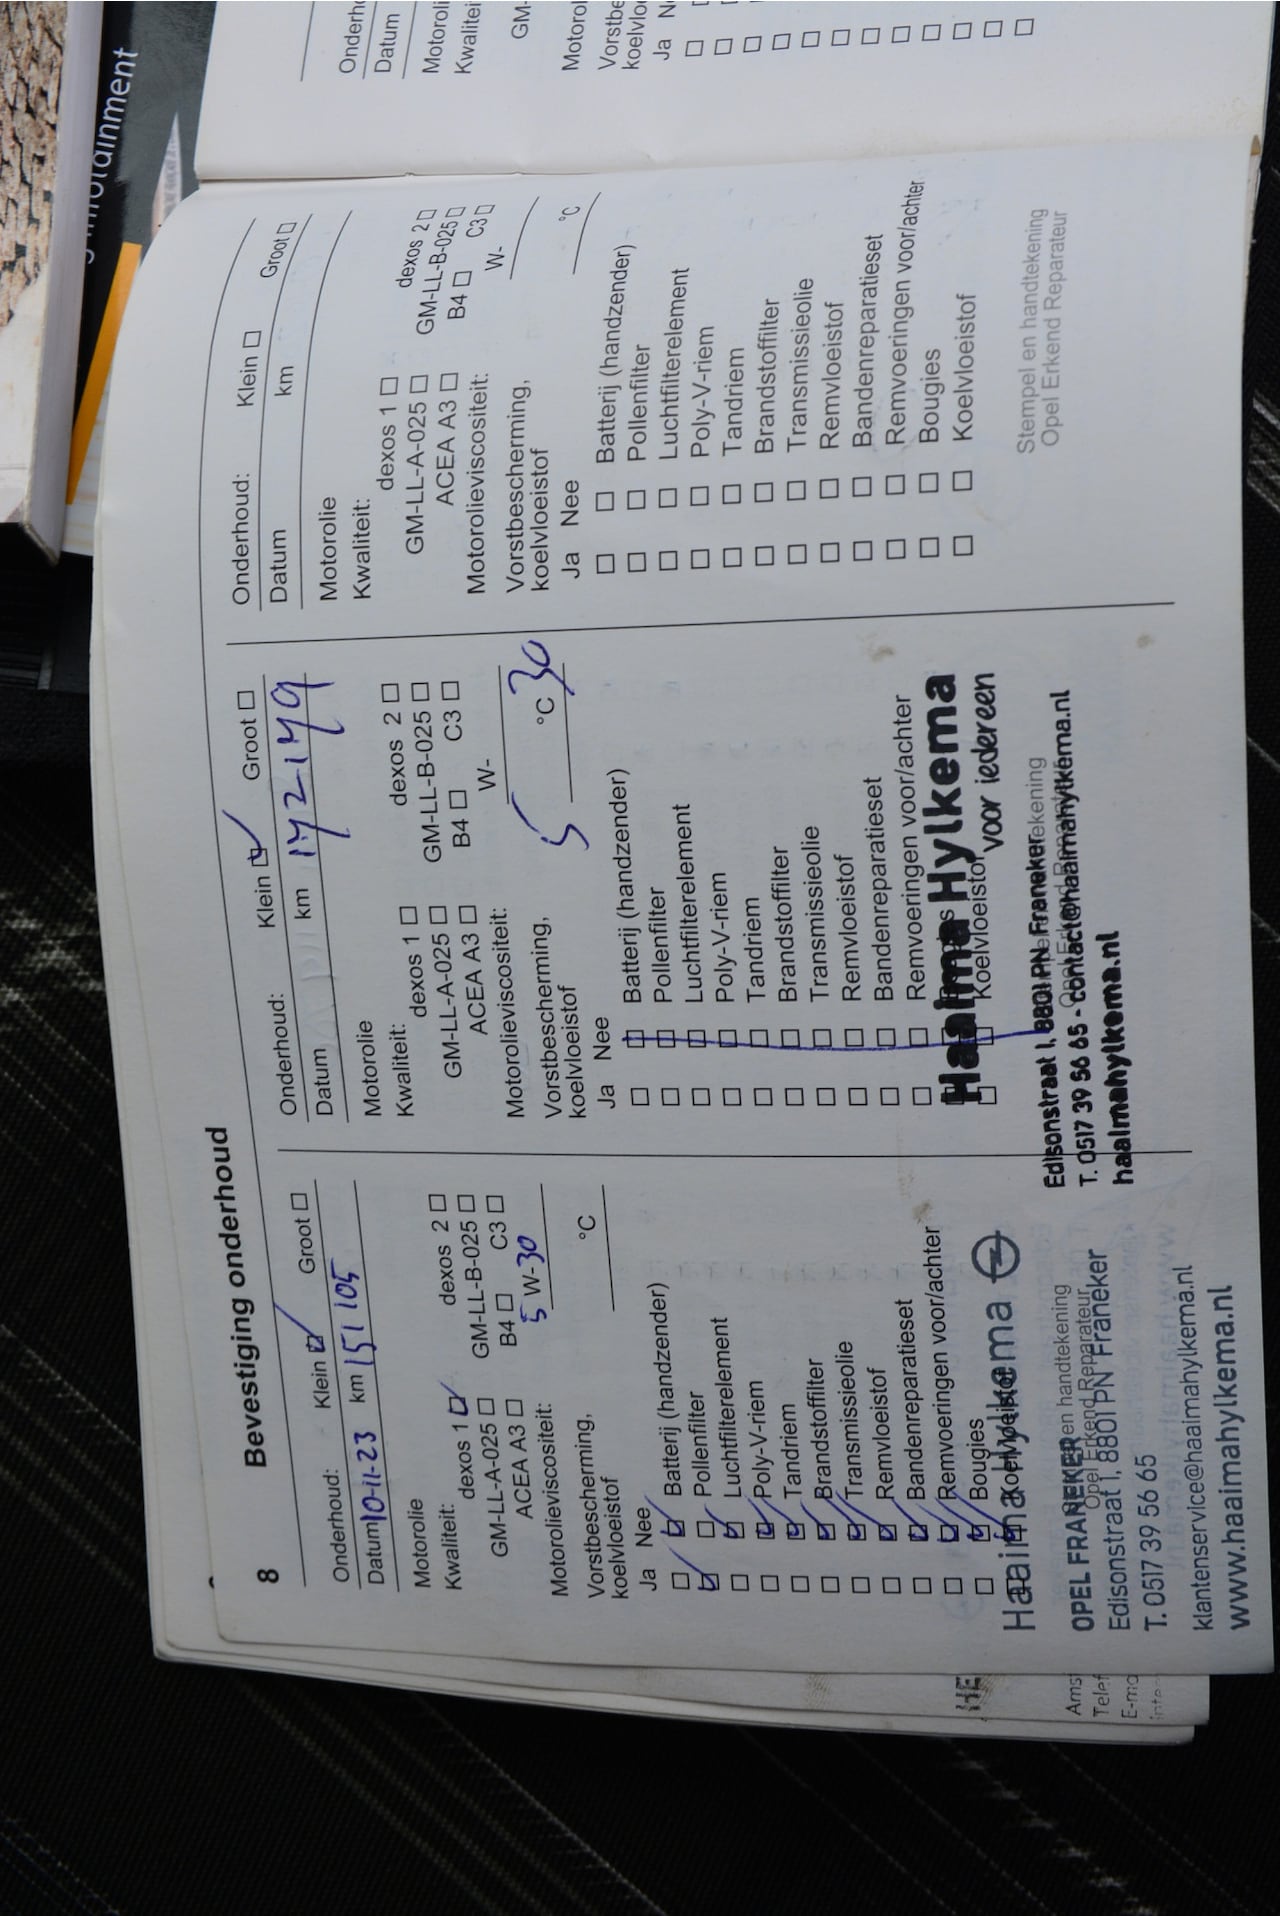 g Infotainment
8 Bevestiging onderhoud
Onderhoud: Klein Groot
Datum 10-11-23 km 151105
Motorolie
Kwaliteit:
dexos 1 dexos 2
GM-LL-A-025 GM-LL-B-025
ACEA A3 B4 C3
Motorolieviscositeit: 5 W-30
Vorstbescherming,
koelvloeistof °C
Ja Nee
Batterij (handzender)
Pollenfilter
Luchtfilterelement
Poly-V-riem
Tandriem
Brandstoffilter
Transmissieolie
Remvloeistof
Bandenreparatieset
Remvoeringen voor/achter
Bougies
Koelvloeistof
Haaima Hylkema
en handtekening
Opel Erkend Reparateur
OPEL FRANEKER
Edisonstraat 1, 8801 PN Franeker
T. 0517 39 56 65
klantenservice@haaimahylkema.nl
www.haaimahylkema.nl
Onderhoud: Klein Groot
Datum km 172149
Motorolie
Kwaliteit:
dexos 1 dexos 2
GM-LL-A-025 GM-LL-B-025
ACEA A3 B4 C3
Motorolieviscositeit: W-
Vorstbescherming,
koelvloeistof 5 °C 30
Ja Nee
Batterij (handzender)
Pollenfilter
Luchtfilterelement
Poly-V-riem
Tandriem
Brandstoffilter
Transmissieolie
Remvloeistof
Bandenreparatieset
Remvoeringen voor/achter
Koelvloeistof
Haaima Hylkema
voor iedereen
Edisonstraat 1, 8801 PN Franeker
T. 0517 39 56 65 - contact@haaimahylkema.nl
haaimahylkema.nl
Onderhoud: Klein Groot
Datum km
Motorolie
Kwaliteit:
dexos 1 dexos 2
GM-LL-A-025 GM-LL-B-025
ACEA A3 B4 C3
Motorolieviscositeit: W-
Vorstbescherming,
koelvloeistof °C
Ja Nee
Batterij (handzender)
Pollenfilter
Luchtfilterelement
Poly-V-riem
Tandriem
Brandstoffilter
Transmissieolie
Remvloeistof
Bandenreparatieset
Remvoeringen voor/achter
Bougies
Koelvloeistof
Stempel en handtekening
Opel Erkend Reparateur
Onderh
Datum
Motoroli
Kwalitei
GM-
Motorol
Vorstbe
koelvloe
Ja N
HE
Ams
Telef
E-ma